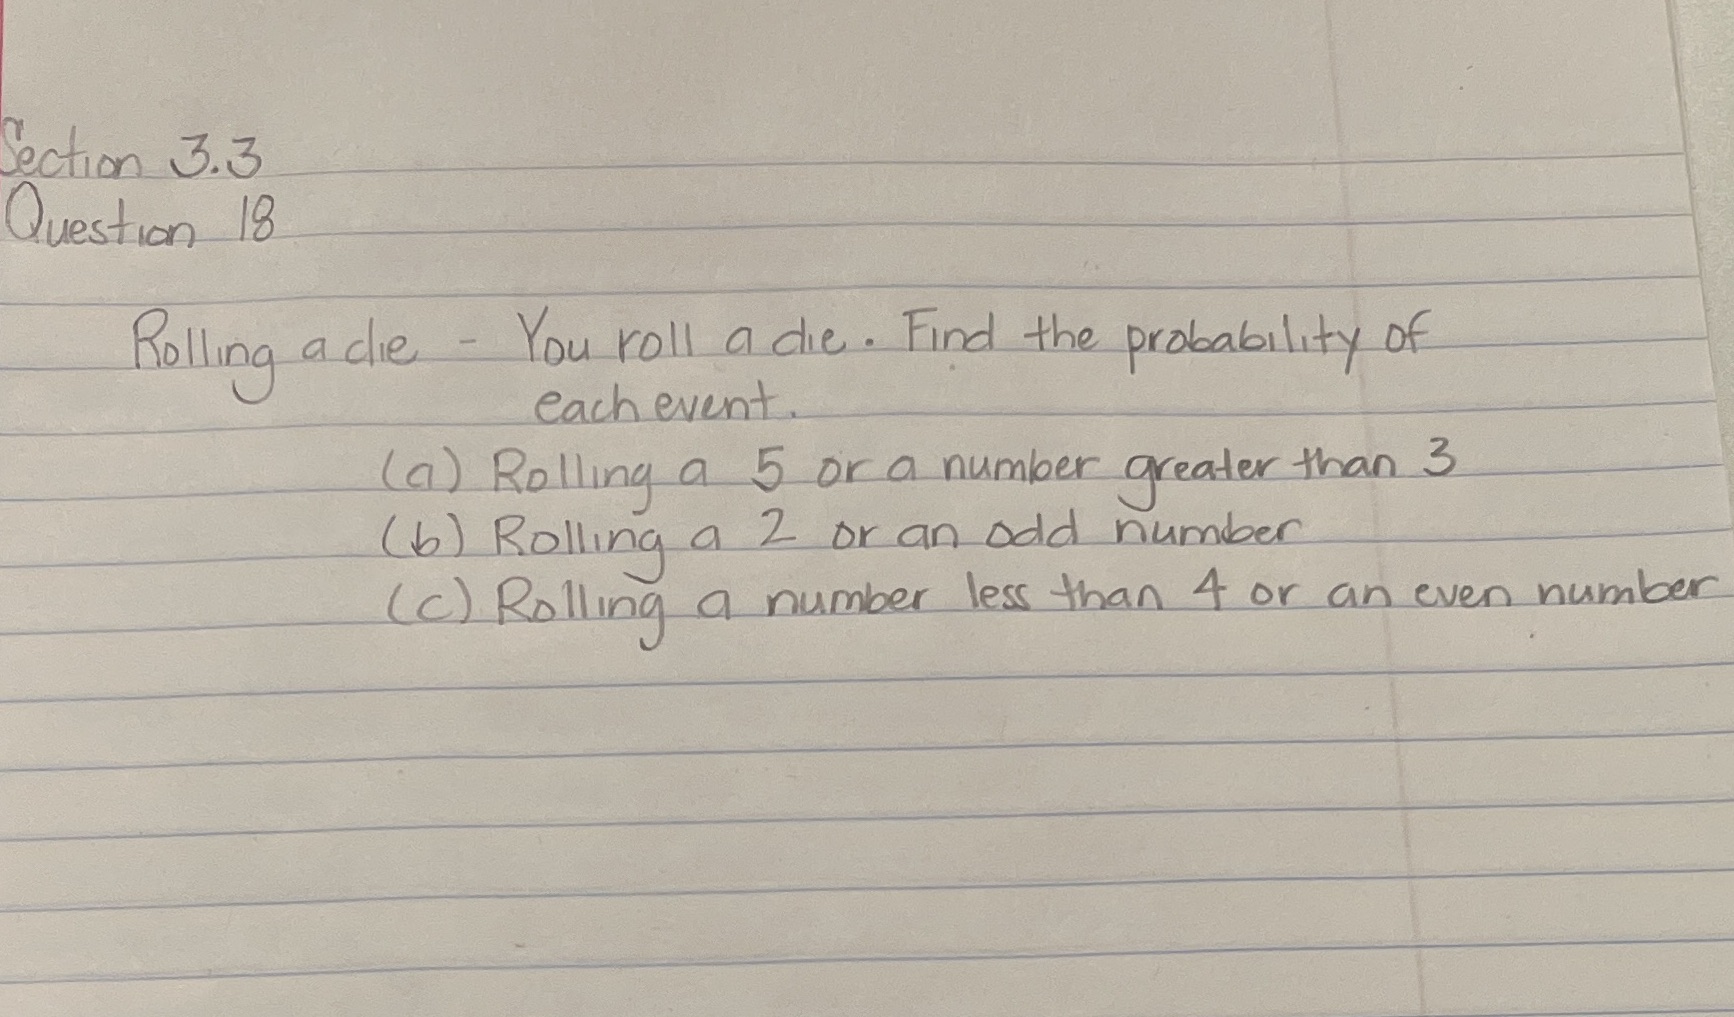 Section 3.3
Question 18
Rolling a die - You roll a die. Find the probability of
each event.
(a) Rolling a 5 or a number greater than 3
(b) Rolling a 2 or an odd number
(c) Rolling a number less than 4 or an even number